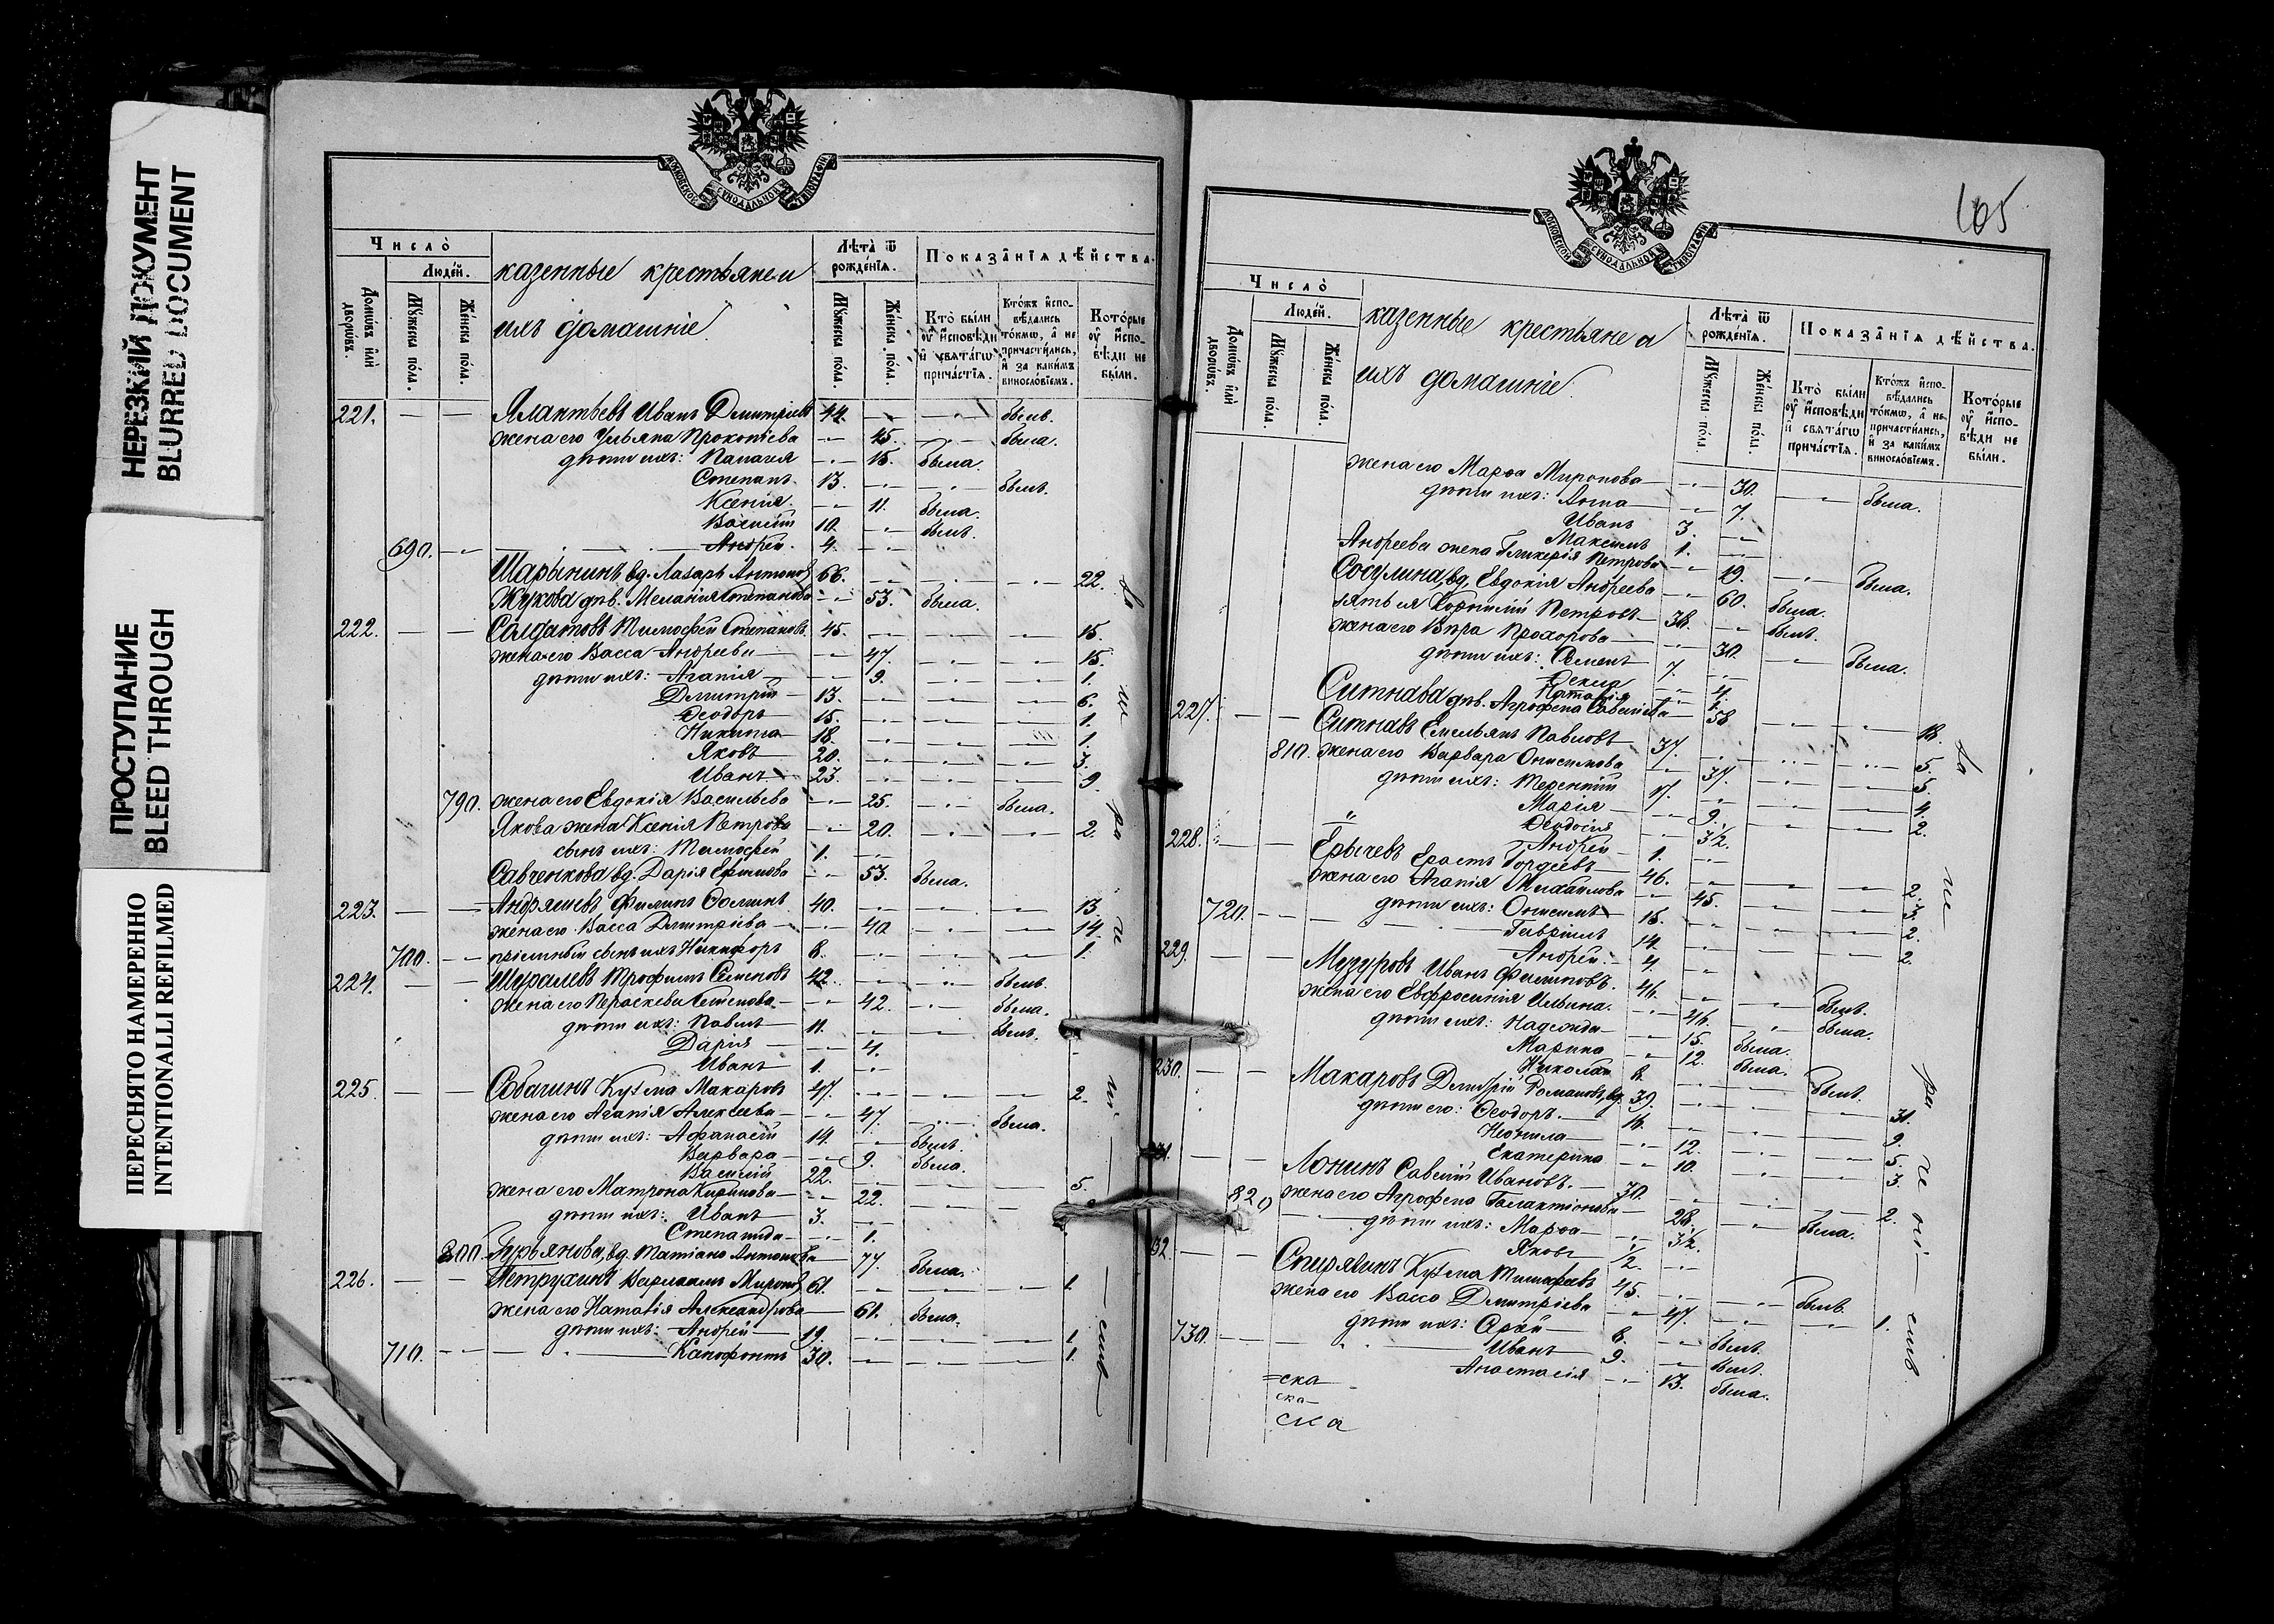 НЕРЕЗКИЙ ДОКУМЕНТ
BLURRED DOCUMENT
ПРОСТУПАНИЕ
BLEED THROUGH
ПЕРЕСНЯТО НАМЕРЕННО
INTENTIONALLI REFILMED
МОСКОВСКОЙ СѴНОДАЛЬНОЙ ТИПОГРАФІИ
Число̀
Людей.
Домѡвъ и҆лѝ дворѡвъ.
Мꙋжеска пола.
Женска пола.
казенные крестьяне и
ихъ домашніе.
Лѣта̀ ѿ рожденїѧ.
Мꙋжеска пола.
Женска пола.
Показанїѧ дѣйства.
Кто̀ были ᲂу҆ и҆сповѣди и҆ свѧтагѡ причастїѧ.
Ктожъ и҆сповѣдались токмѡ, а҆ не причастились, и҆ за какимъ винословїемъ.
Которые ᲂу҆ и҆сповѣди не были.
221. — — Ялактьевъ Иванъ Дмитріевъ 44. былъ.
жена его Ульяна Прокопіева 45. была.
дѣти ихъ: Палагея 15. была.
Степанъ 13. былъ.
Ксенія 11. была.
Василій 10. былъ.
690. Андрей 4.
Шарынинъ вд. Лазарь Антоновъ 66. 22.
Жукова дѣв. Меланія Степанова 53. была.
222. — — Солдатовъ Тимоѳей Степановъ 45. 15.
жена его Васса Андреева 47. 15.
дѣти ихъ: Агапія 9. 1.
Дмитрій 13. 6.
Ѳеодоръ 15. 1.
Никита 18. 1.
Яковъ 20. 3.
Иванъ 23. 9.
790. жена его Евдокія Васильева 25. была.
Якова жена Ксенія Петрова 20. 2.
сынъ ихъ: Тимоѳей 1.
Савченкова вд. Дарія Ефимова 53. была.
223. — — Андряшевъ Филипъ Ѳоминъ 40. 13.
жена его Васса Дмитріева 40. 14.
700. пріемный сынъ ихъ Никифоръ 8. 1.
224. — — Шуралевъ Трофимъ Семеновъ 42. былъ.
жена его Параскева 42. была.
дѣти ихъ: Павелъ 11. былъ.
Дарія 4.
Иванъ 1.
225. — — Собагинъ Кузьма Макаровъ 47. 2.
жена его Агапія Алексеева 47. была.
дѣти ихъ: Афанасій 14. былъ.
Варвара 9. была.
Василій 22. 5.
жена его Матрона 22.
дѣти ихъ: Иванъ 3.
Степанида 1.
800. Гурьянова, вд. Татіана Антонова 77. была.
226. — — Петрухинъ Варлаамъ Мироновъ 61. 1
жена его Наталія Александрова 61. была.
дѣти ихъ: Андрей 19. 1.
710. Ксенофонтъ 30. 1.
105
МОСКОВСКОЙ СѴНОДАЛЬНОЙ ТИПОГРАФІИ
Число̀
Людей.
Домѡвъ и҆лѝ дворѡвъ.
Мꙋжеска пола.
Женска пола.
казенные крестьяне и
ихъ домашніе.
Лѣта̀ ѿ рожденїѧ.
Мꙋжеска пола.
Женска пола.
Показанїѧ дѣйства.
Кто̀ были ᲂу҆ и҆сповѣди и҆ свѧтагѡ причастїѧ.
Ктожъ и҆сповѣдались токмѡ, а҆ не причастились, и҆ за какимъ винословїемъ.
Которые ᲂу҆ и҆сповѣди не были.
жена его Марѳа Миронова 30. была.
дѣти ихъ: Анна 7.
Иванъ 3.
Максимъ 1.
Андреева жена Гликерія Петрова 19. была.
Сосулина вд. Евдокія Андреева 60. была.
зять ея Корнилій Петровъ 38. былъ.
жена его Вѣра Прохорова 30. была.
дѣти ихъ: Семенъ 7.
Ѳекла 4.
Наталія 1.
227. — — Ситнава дѣв. Агрофена Савельева 58 18.
Ситнавъ Емельянъ Павловъ 37. 5.
810. жена его Варвара Онисимова 37. 5.
дѣти ихъ: Терентій 17. 4.
Марія 9. 2.
Ѳеодосія 3½.
Андрей 1.
228. — — Ерычевъ Ерастъ Гордеевъ 46. 2.
жена его Агапія Михайлова 45. 3.
720. дѣти ихъ: Онисимъ 15. 2.
Гавріилъ 14. 2.
Андрей 4.
229. — — Музуровъ Иванъ Филиповъ. 46. былъ.
жена его Евфросинія Ильина. 46. была.
дѣти ихъ: Надежда 15. была.
Марина 12. была.
Николай 8. былъ.
230. — — Макаровъ Дмитрій Романовъ, вд. 39. 31.
дѣти его: Ѳеодоръ 16. 9.
Неонила 12. 5.
Екатерина 10. 3.
31. — — Лонинъ Савелій Ивановъ. 30. 2.
820 жена его Агрофена Галактіонова 28. была.
дѣти ихъ: Марѳа 3½.
Яковъ ½.
32. — — Спирявинъ Кузьма Тимофеевъ 45. былъ.
жена его Васса Дмитріева 47. 1.
730. дѣти ихъ: 8. былъ.
Иванъ 9. былъ.
Анастасія 13. была.
=ска
ска
ска